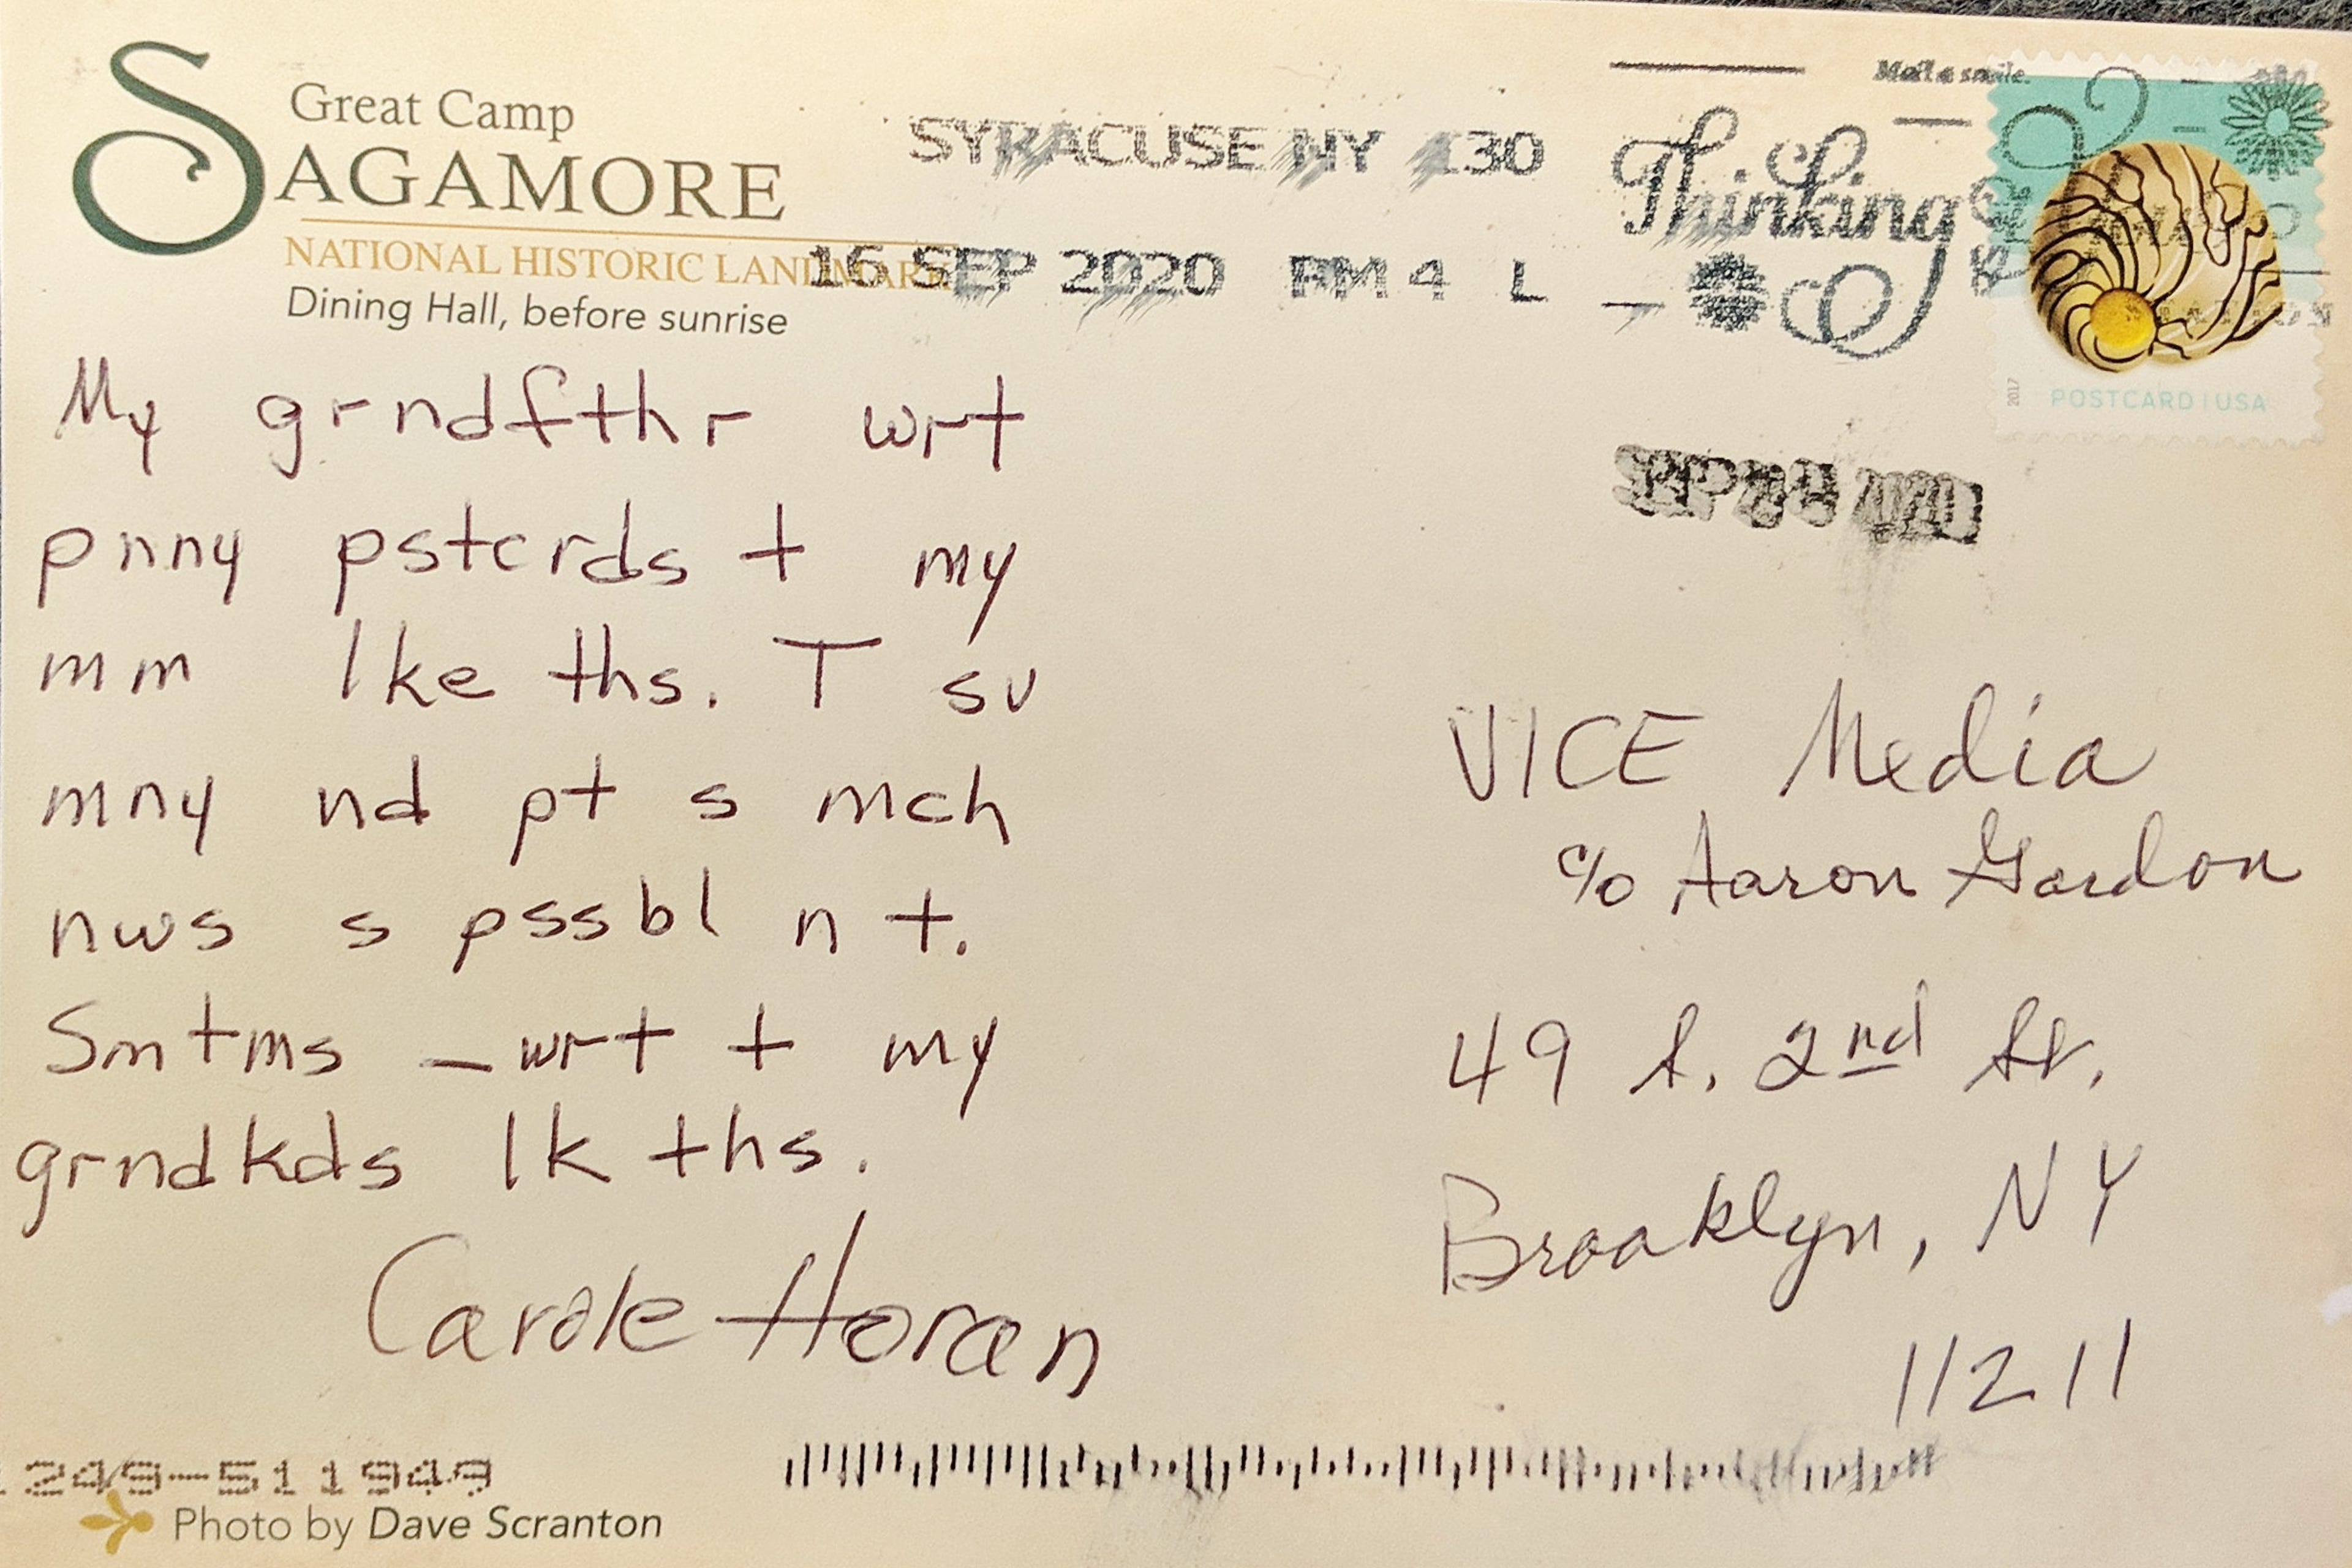 Great Camp
SAGAMORE
NATIONAL HISTORIC LANDMARK
Dining Hall, before sunrise
SYRACUSE NY 130
16 SEP 2020 PM 4 L
Mail a smile.
Thinking
of
2017
POSTCARD | USA
SEP 2020
My grndfthr wrt
pnny pstcrds t my
mm lke ths. T sv
mny nd pt s mch
nws s pssbl n t.
Smtms _ wrt t my
grndkds lk ths.
Carole Horan
VICE Media
c/o Aaron Gordon
49 S. 2nd St.
Brooklyn, NY
11211
249-511949
Photo by Dave Scranton